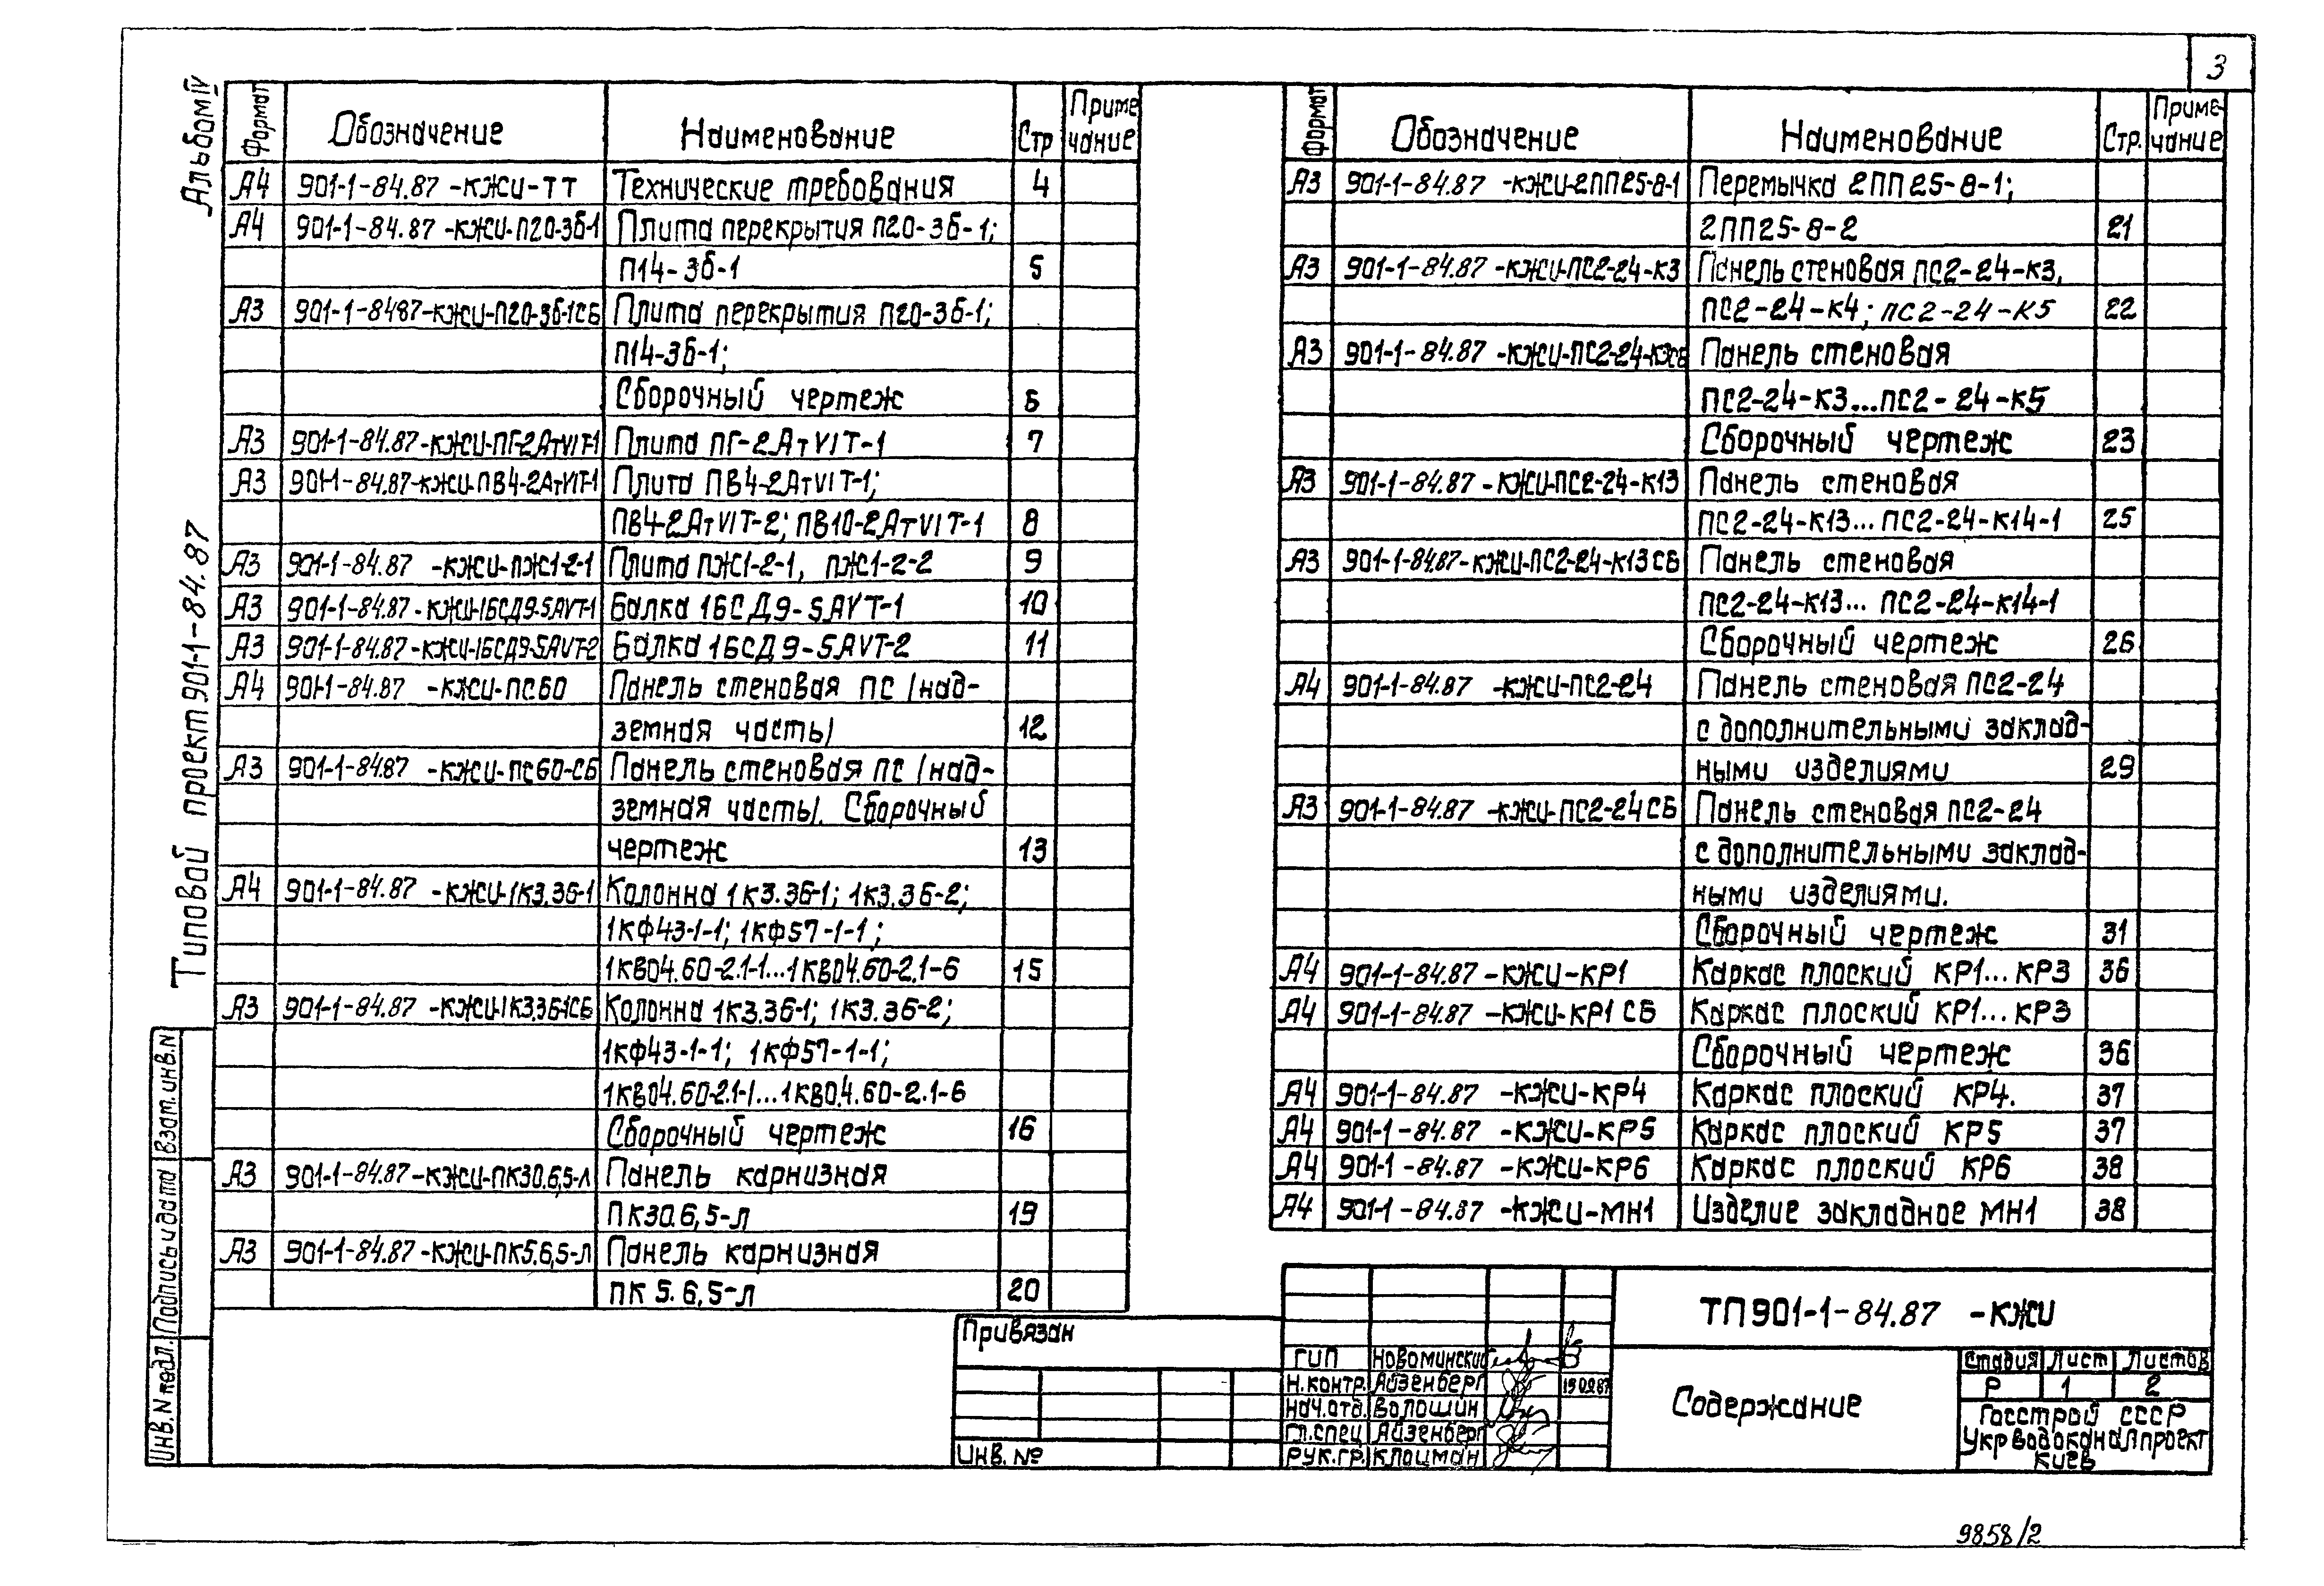 3
Альбом IV
Типовой проект 901-1-84.87
Формат Обозначение Наименование Стр Приме чание
А4 901-1-84.87 -КЖИ-ТТ Технические требования 4
А4 901-1-84.87 -КЖИ-П20-3б-1 Плита перекрытия П20-3б-1;
П14-3б-1 5
А3 901-1-8487-КЖИ-П20-3б-1СБ Плита перекрытия П20-3б-1;
П14-3б-1;
Сборочный чертеж 6
А3 901-1-84.87-КЖИ-ПГ-2АтVIТ-1 Плита ПГ-2АтVIТ-1 7
А3 901-1-84.87-КЖИ-ПВ4-2АтVIТ-1 Плита ПВ4-2АтVIТ-1;
ПВ4-2АтVIТ-2; ПВ10-2АтVIТ-1 8
А3 901-1-84.87 -КЖИ-ПЖ1-2-1 Плита ПЖ1-2-1, ПЖ1-2-2 9
А3 901-1-84.87 -КЖИ-1БСД9-5АVТ-1 Балка 1БСД9-5АVТ-1 10
А3 901-1-84.87 -КЖИ-1БСД9-5АVТ-2 Балка 1БСД9-5АVТ-2 11
А4 901-1-84.87 -КЖИ-ПС60 Панель стеновая ПС /над-
земная часть/ 12
А3 901-1-84.87 -КЖИ-ПС60-СБ Панель стеновая ПС /над-
земная часть/. Сборочный
чертеж 13
А4 901-1-84.87 -КЖИ-1К3.36-1 Колонна 1К3.36-1; 1К3.36-2;
1КФ43-1-1; 1КФ57-1-1;
1КВ04.60-2.1-1...1КВ04.60-2.1-6 15
А3 901-1-84.87 -КЖИ-1К3.36-1СБ Колонна 1К3.36-1; 1К3.36-2;
1КФ43-1-1; 1КФ57-1-1;
1КВ04.60-2.1-1...1КВ0.4.60-2.1-6
Сборочный чертеж 16
А3 901-1-84.87-КЖИ-ПК30.6,5-Л Панель карнизная
ПК30.6,5-Л 19
А3 901-1-84.87-КЖИ-ПК5.6,5-Л Панель карнизная
ПК 5.6,5-Л 20
Формат Обозначение Наименование Стр. Приме- чание
А3 901-1-84.87 -КЖИ-2ПП25-8-1 Перемычка 2ПП25-8-1;
2ПП25-8-2 21
А3 901-1-84.87 -КЖИ-ПС2-24-К3 Панель стеновая ПС2-24-К3,
ПС2-24-К4; ПС2-24-К5 22
А3 901-1-84.87 -КЖИ-ПС2-24-К3СБ Панель стеновая
ПС2-24-К3...ПС2-24-К5
Сборочный чертеж 23
А3 901-1-84.87 -КЖИ-ПС2-24-К13 Панель стеновая
ПС2-24-К13... ПС2-24-К14-1 25
А3 901-1-84.87-КЖИ-ПС2-24-К13СБ Панель стеновая
ПС2-24-К13... ПС2-24-К14-1
Сборочный чертеж 26
А4 901-1-84.87 -КЖИ-ПС2-24 Панель стеновая ПС2-24
с дополнительными заклад-
ными изделиями 29
А3 901-1-84.87 -КЖИ-ПС2-24СБ Панель стеновая ПС2-24
с дополнительными заклад-
ными изделиями.
Сборочный чертеж 31
А4 901-1-84.87 -КЖИ-КР1 Каркас плоский КР1...КР3 36
А4 901-1-84.87 -КЖИ-КР1 СБ Каркас плоский КР1...КР3
Сборочный чертеж 36
А4 901-1-84.87 -КЖИ-КР4 Каркас плоский КР4. 37
А4 901-1-84.87 -КЖИ-КР5 Каркас плоский КР5 37
А4 901-1-84.87 -КЖИ-КР6 Каркас плоский КР6 38
А4 901-1-84.87 -КЖИ-МН1 Изделие закладное МН1 38
Взат. инв. N
Подпись и дата
Инв. N подл.
Привязан
Инв. №
ГИП Новоминский
Н.контр. Айзенберг
Нач.отд. Волошин
Гл.спец Айзенберг
Рук.гр. Клоцман
ТП 901-1-84.87 -КЖИ
Содержание
Стадия Лист Листов
Р 1 2
Госстрой СССР
Укрводоканалпроект
Киев
9858/2